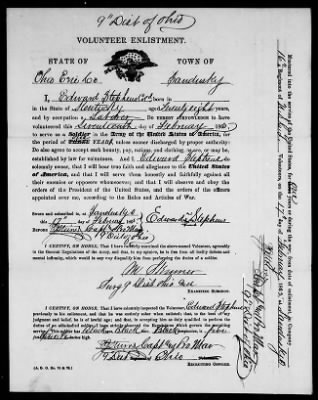 9th Dist of Ohio
VOLUNTEER ENLISTMENT.
STATE OF
TOWN OF
Ohio Erie Co
Sandusky
I, Edward Stephens born in
in the State of Kentucky aged Twenty eight years,
and by occupation a Laborer Do HEREBY ACKNOWLEDGE to have
volunteered this Seventeenth day of February 1865,
to serve as a Soldier in the Army of the United States of America, for the
period of years, unless sooner discharged by proper authority:
Do also agree to accept such bounty, pay, rations, and clothing, as are, or may be,
established by law for volunteers. And I, Edward Stephens do
solemnly swear, that I will bear true faith and allegiance to the United States
of America, and that I will serve them honestly and faithfully against all
their enemies or opposers whomsoever; and that I will observe and obey the
orders of the President of the United States, and the orders of the officers
appointed over me, according to the Rules and Articles of War.
Sworn and subscribed to, at Sandusky O
this 17th day of February 1865
Edward Stephens
BEFORE Capt & Pro Mar
9th Dist Ohio
I CERTIFY, ON HONOR, That I have carefully examined the above-named Volunteer, agreeably
to the General Regulations of the Army, and that, in my opinion, he is free from all bodily defects and
mental infirmity, which would in any way disqualify him from performing the duties of a soldier.
EXAMINING SURGEON.
I CERTIFY, ON HONOR, That I have minutely inspected the Volunteer, Edward Stephens
previously to his enlistment, and that he was entirely sober when enlisted; that, to the best of my
judgment and belief, he is of lawful age; and that, in accepting him as duly qualified to perform the
duties of an able-bodied soldier, I have strictly observed the Regulations which govern the recruiting service.
This soldier has Black eyes, Black hair, complexion, is five feet
inches high.
Capt & Pro Mar
9th Dist Ohio
RECRUITING OFFICER.
(A. G. O. No. 74 & 76.)
Mustered into the service of the United States, for
years or during the war, from date of enlistment, in Company
Regiment of Volunteers, on the 17 day of
February 1865, at Sandusky O
Capt & Pro Mar
9th Dist Ohio